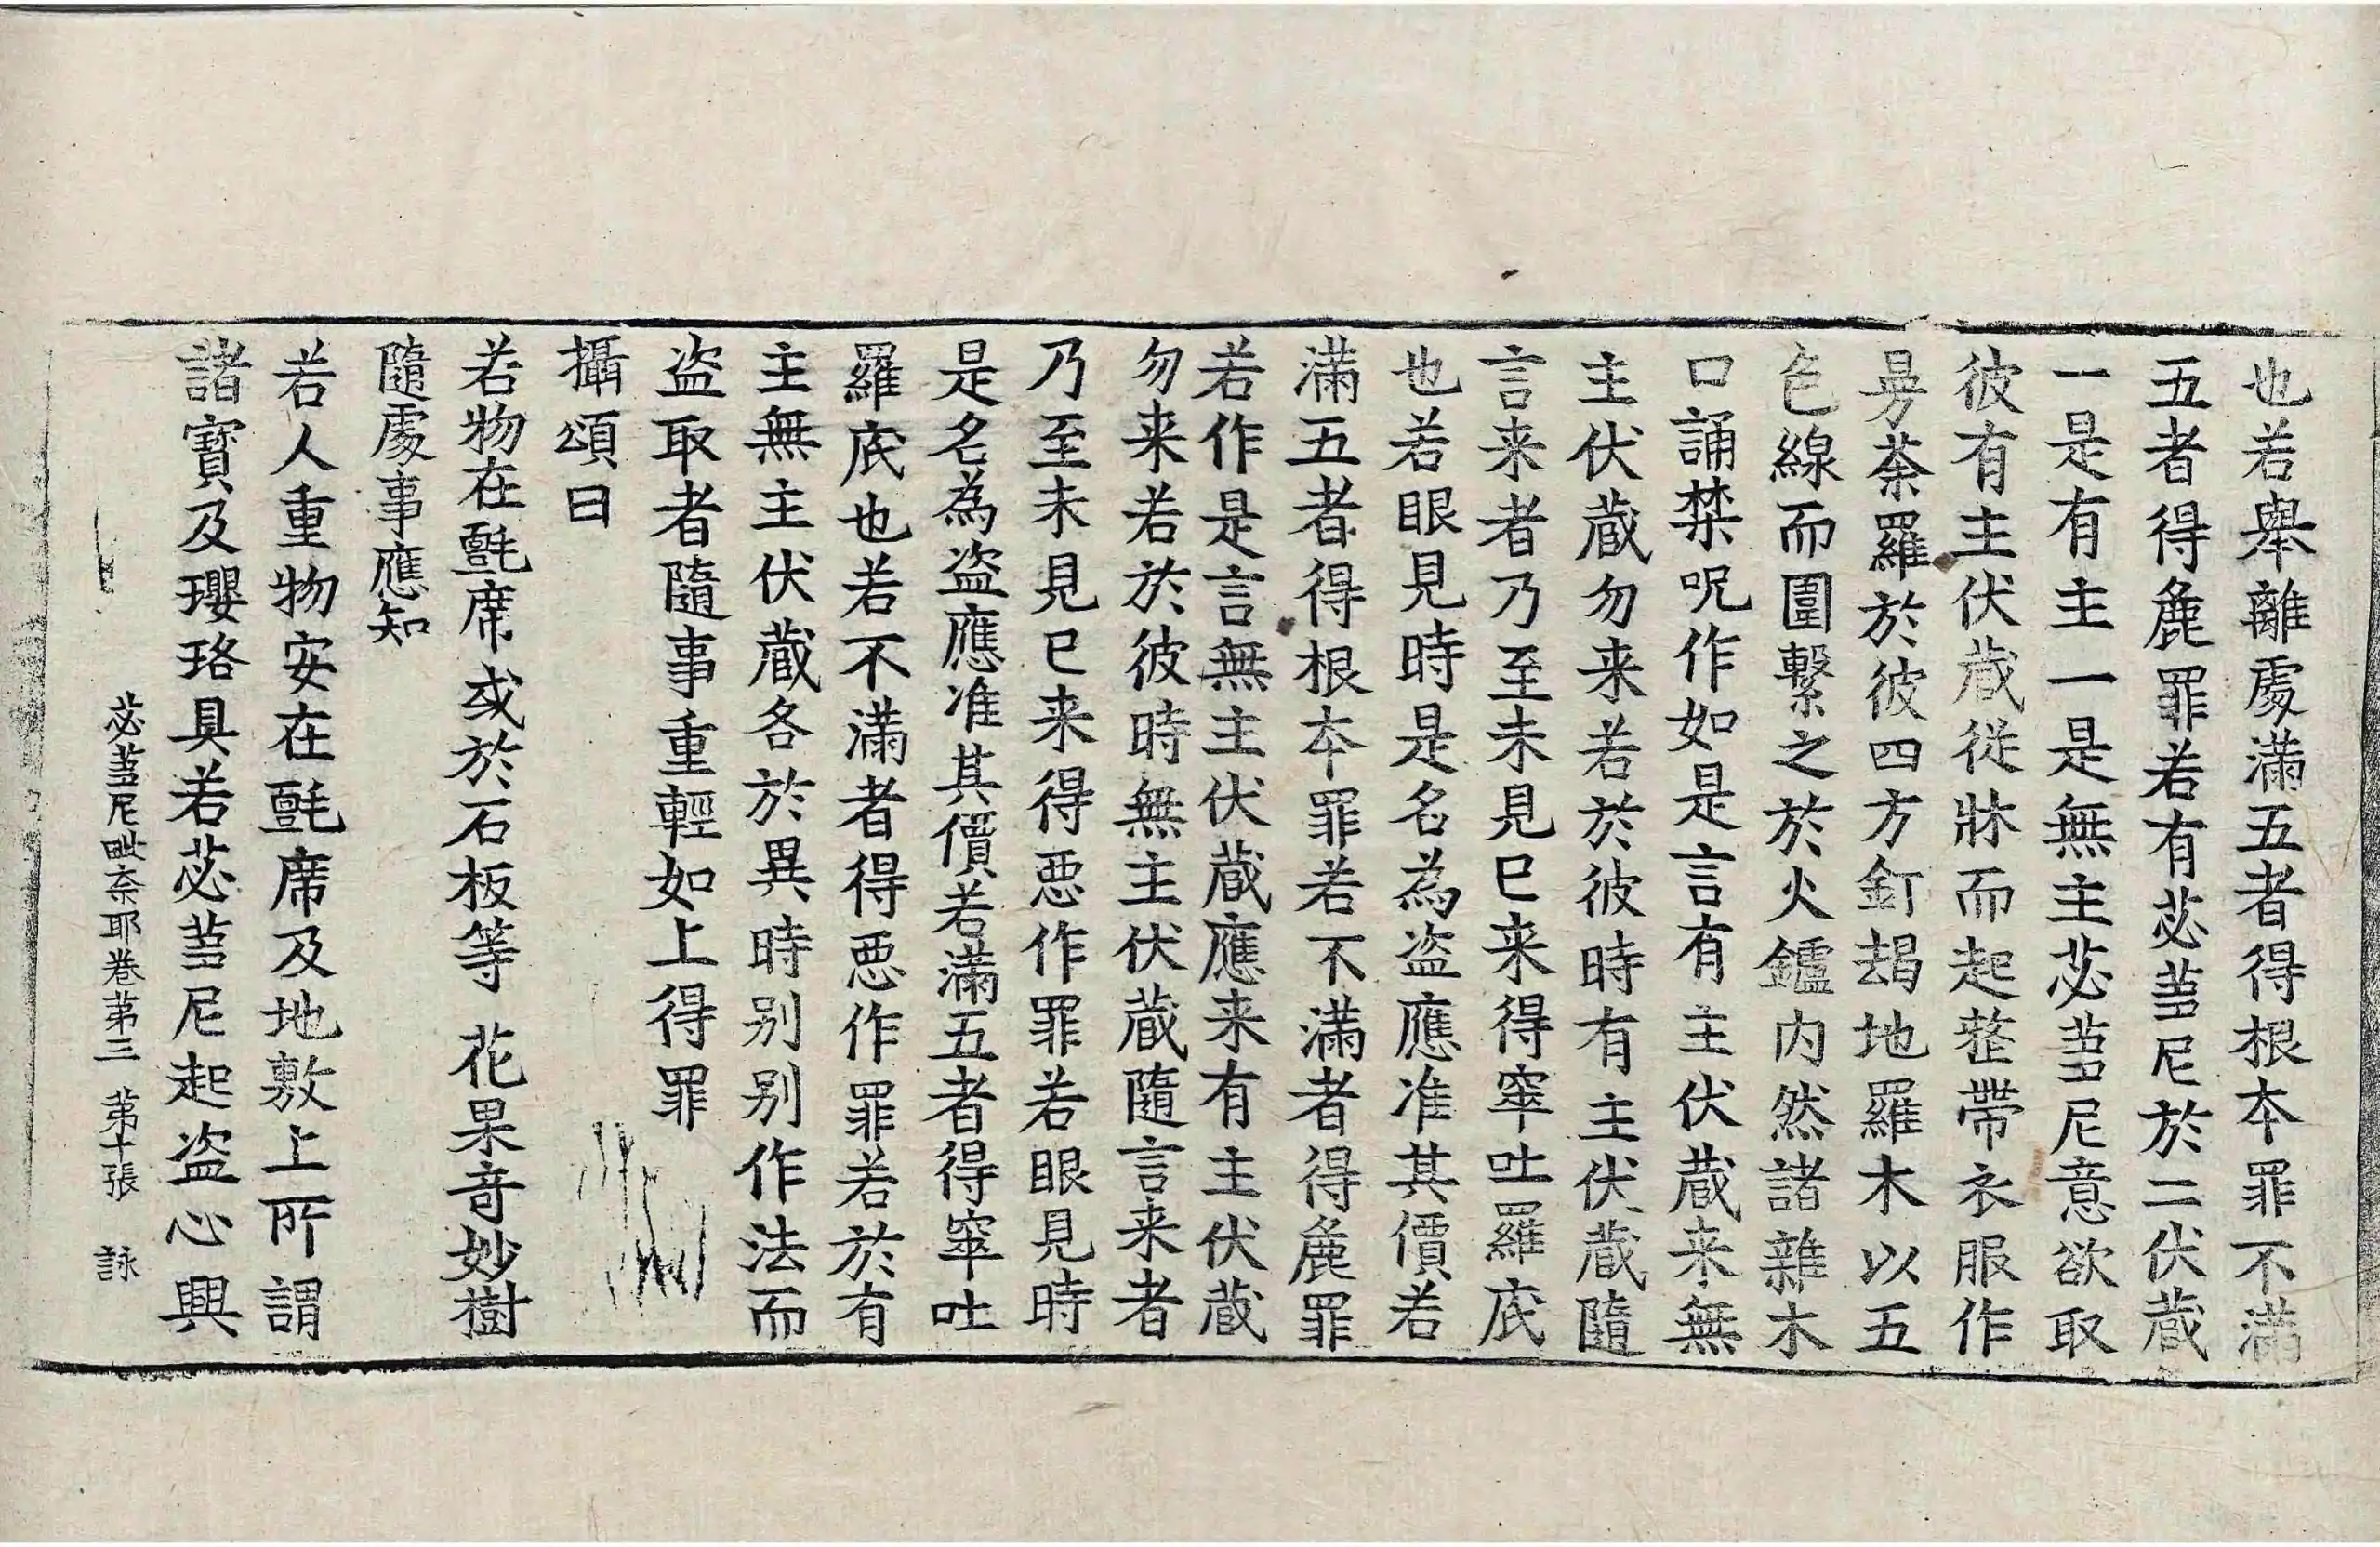 也若舉離處滿五者得根本罪不滿
五者得麁罪若有苾芻尼於二伏藏
一是有主一是無主苾芻尼意欲取
彼有主伏藏從牀而起整帶衣服作
曼荼羅於彼四方釘朅地羅木以五
色線而圍繫之於火鑪内然諸雜木
口誦禁呪作如是言有主伏藏来無
主伏藏勿来若於彼時有主伏藏隨
言来者乃至未見已来得窣吐羅底
也若眼見時是名為盜應准其價若
滿五者得根本罪若不滿者得麁罪
若作是言無主伏藏應来有主伏藏
勿来若於彼時無主伏藏隨言来者
乃至未見已来得惡作罪若眼見時
是名為盜應准其價若滿五者得窣吐
羅底也若不滿者得惡作罪若於有
主無主伏藏各於異時別別作法而
盜取者隨事重輕如上得罪
攝頌曰
若物在氈席或於石板等 花果奇妙樹
隨處事應知
若人重物安在氈席及地敷上所謂
諸寶及瓔珞具若苾芻尼起盜心興
苾芻尼毗奈耶卷第三 第十張 詠